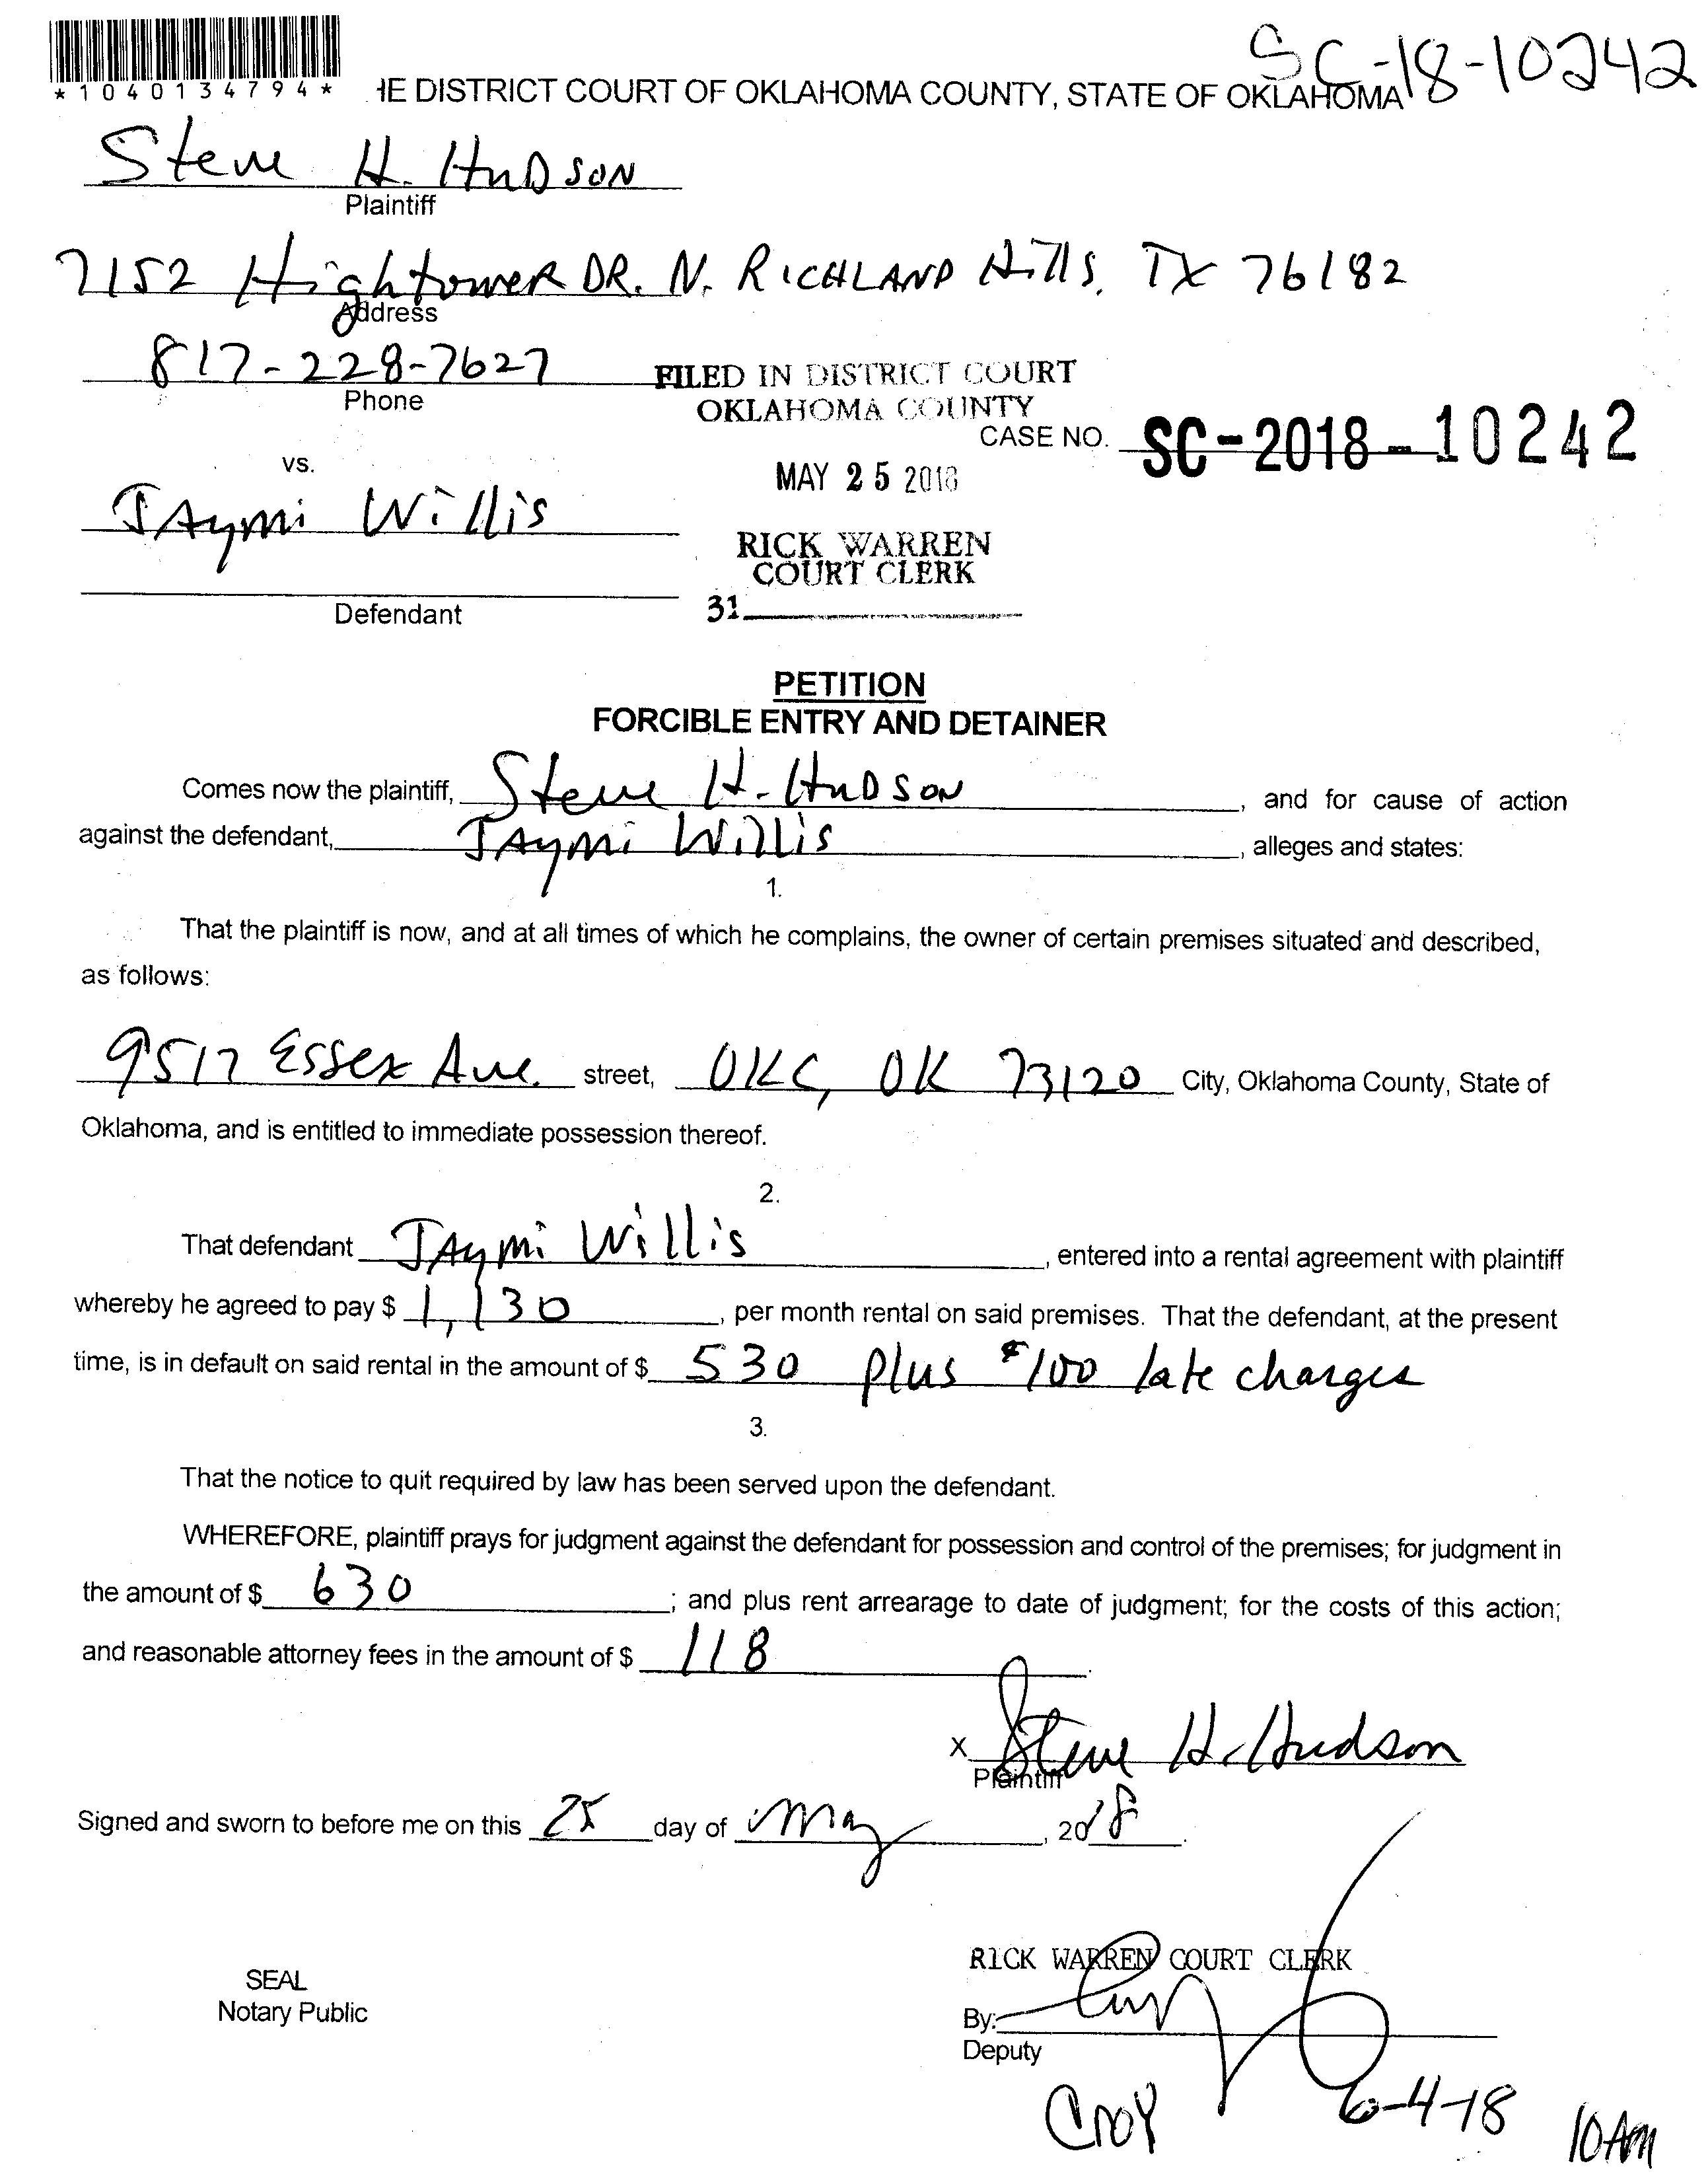 SC-18-10242
*1040134794*
HE DISTRICT COURT OF OKLAHOMA COUNTY, STATE OF OKLAHOMA
Steve H. HUDSON
Plaintiff
7152 Hightower DR. N. RICHLAND Hills, TX 76182
Address
817-228-7627
Phone
FILED IN DISTRICT COURT
OKLAHOMA COUNTY
CASE NO. SC-2018-10242
vs.
MAY 25 2018
JAymi Willis
RICK WARREN
COURT CLERK
31
Defendant
PETITION
FORCIBLE ENTRY AND DETAINER
Comes now the plaintiff, Steve H. HUDSON, and for cause of action
against the defendant, JAymi Willis, alleges and states:
1.
That the plaintiff is now, and at all times of which he complains, the owner of certain premises situated and described,
as follows:
9517 Essex Ave. street, OKC, OK 73120 City, Oklahoma County, State of
Oklahoma, and is entitled to immediate possession thereof.
2.
That defendant JAymi Willis, entered into a rental agreement with plaintiff
whereby he agreed to pay $ 1,130, per month rental on said premises. That the defendant, at the present
time, is in default on said rental in the amount of $ 530 plus $100 late charges
3.
That the notice to quit required by law has been served upon the defendant.
WHEREFORE, plaintiff prays for judgment against the defendant for possession and control of the premises; for judgment in
the amount of $ 630; and plus rent arrearage to date of judgment; for the costs of this action;
and reasonable attorney fees in the amount of $ 118.
X Steve H. Hudson
Plaintiff
Signed and sworn to before me on this 25 day of May, 2018.
RICK WARREN COURT CLERK
SEAL
Notary Public
By:
Deputy
Croy 6-4-18 10AM